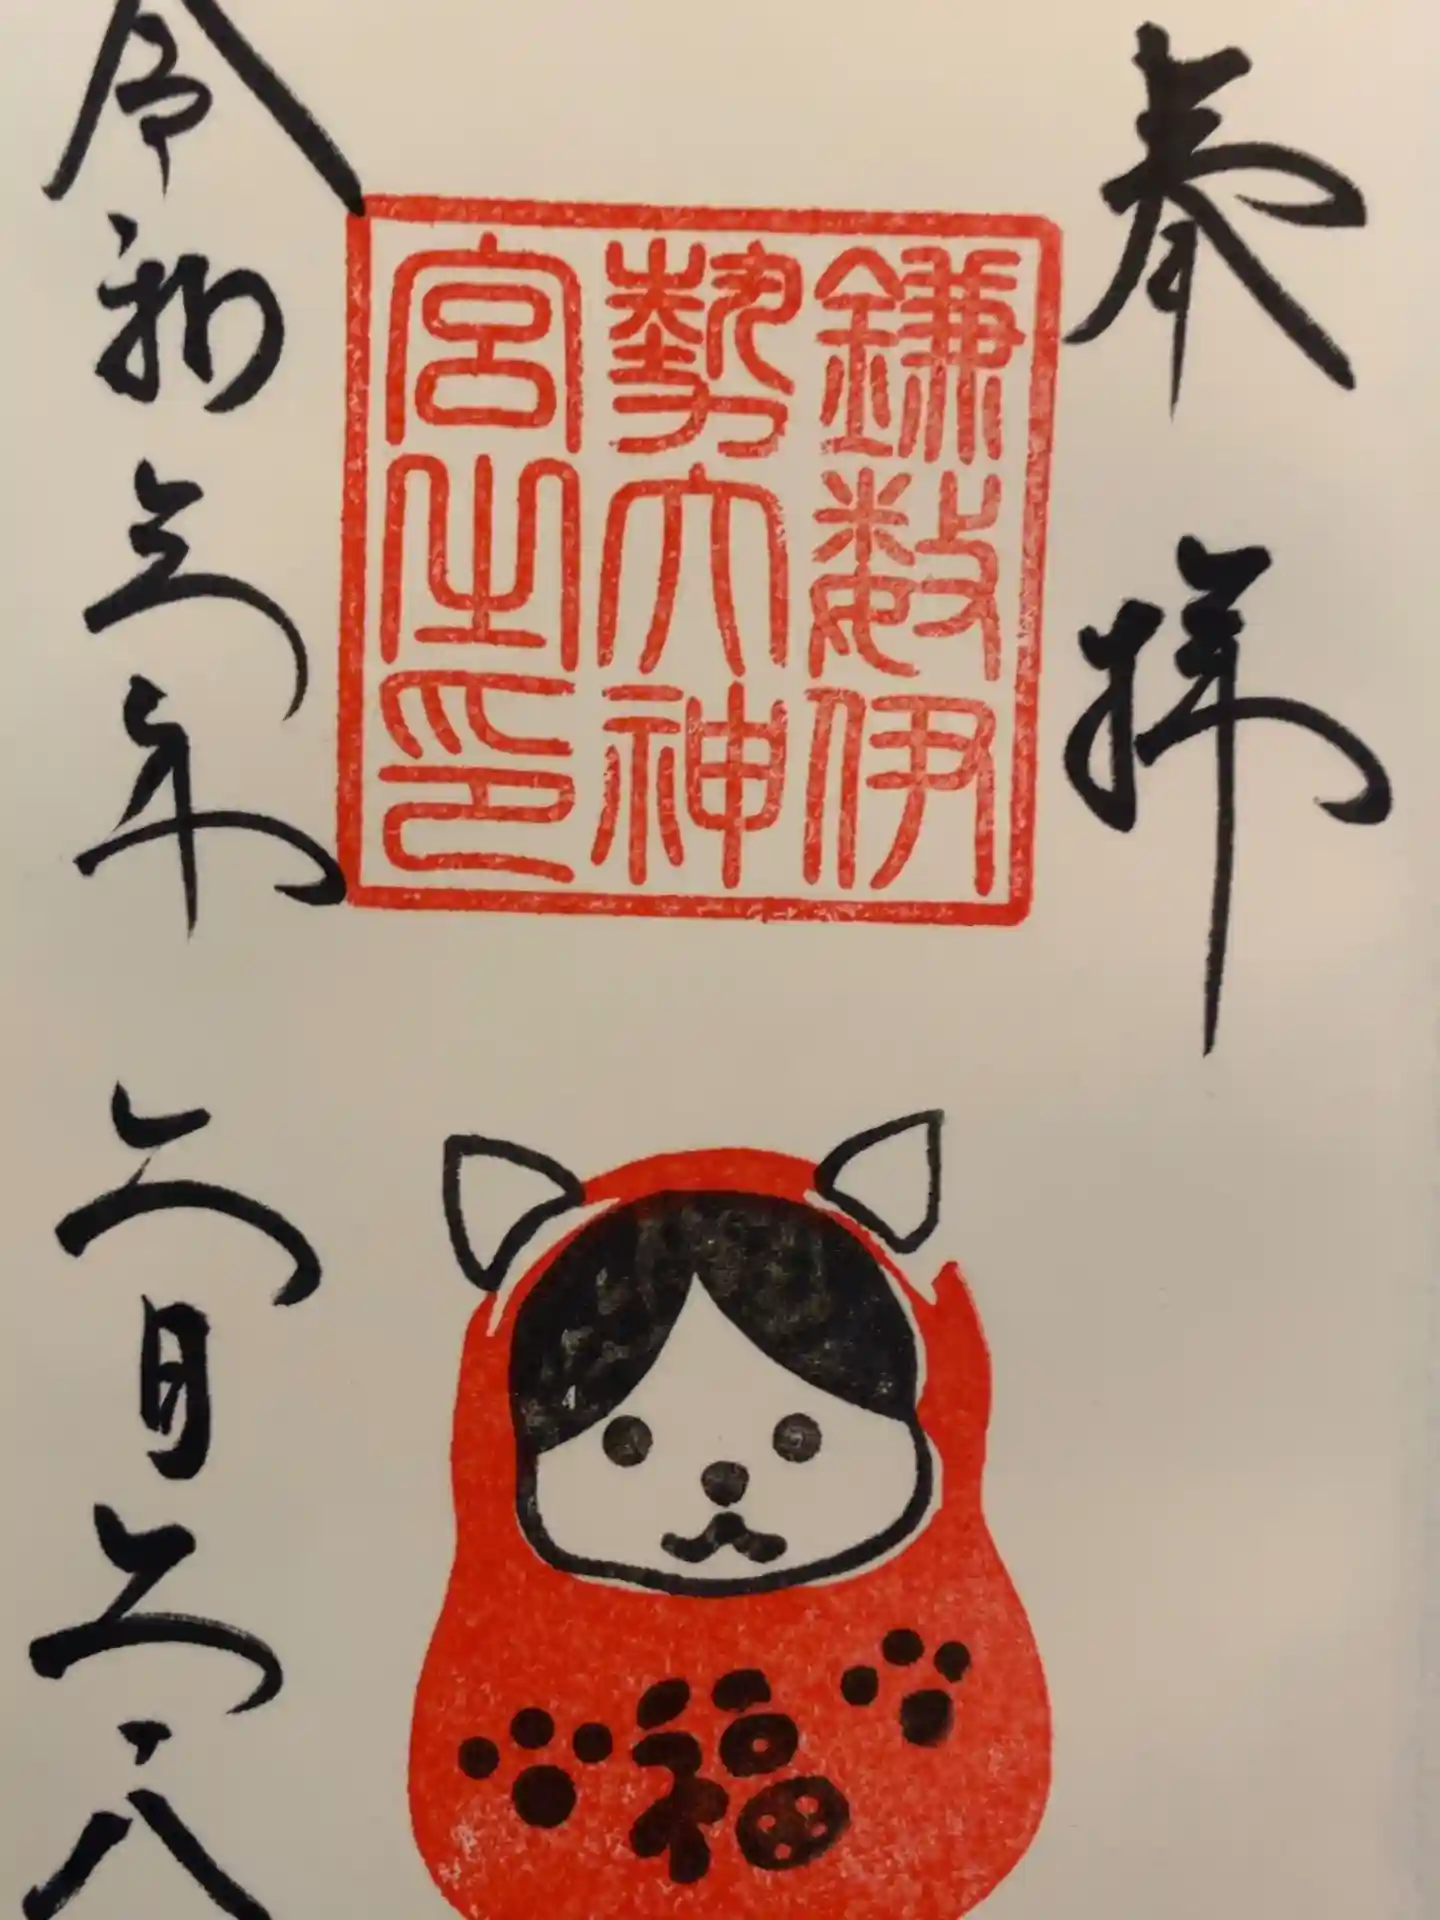 奉拝
鎌数伊
勢大神
宮之印
令和五年 六月
福